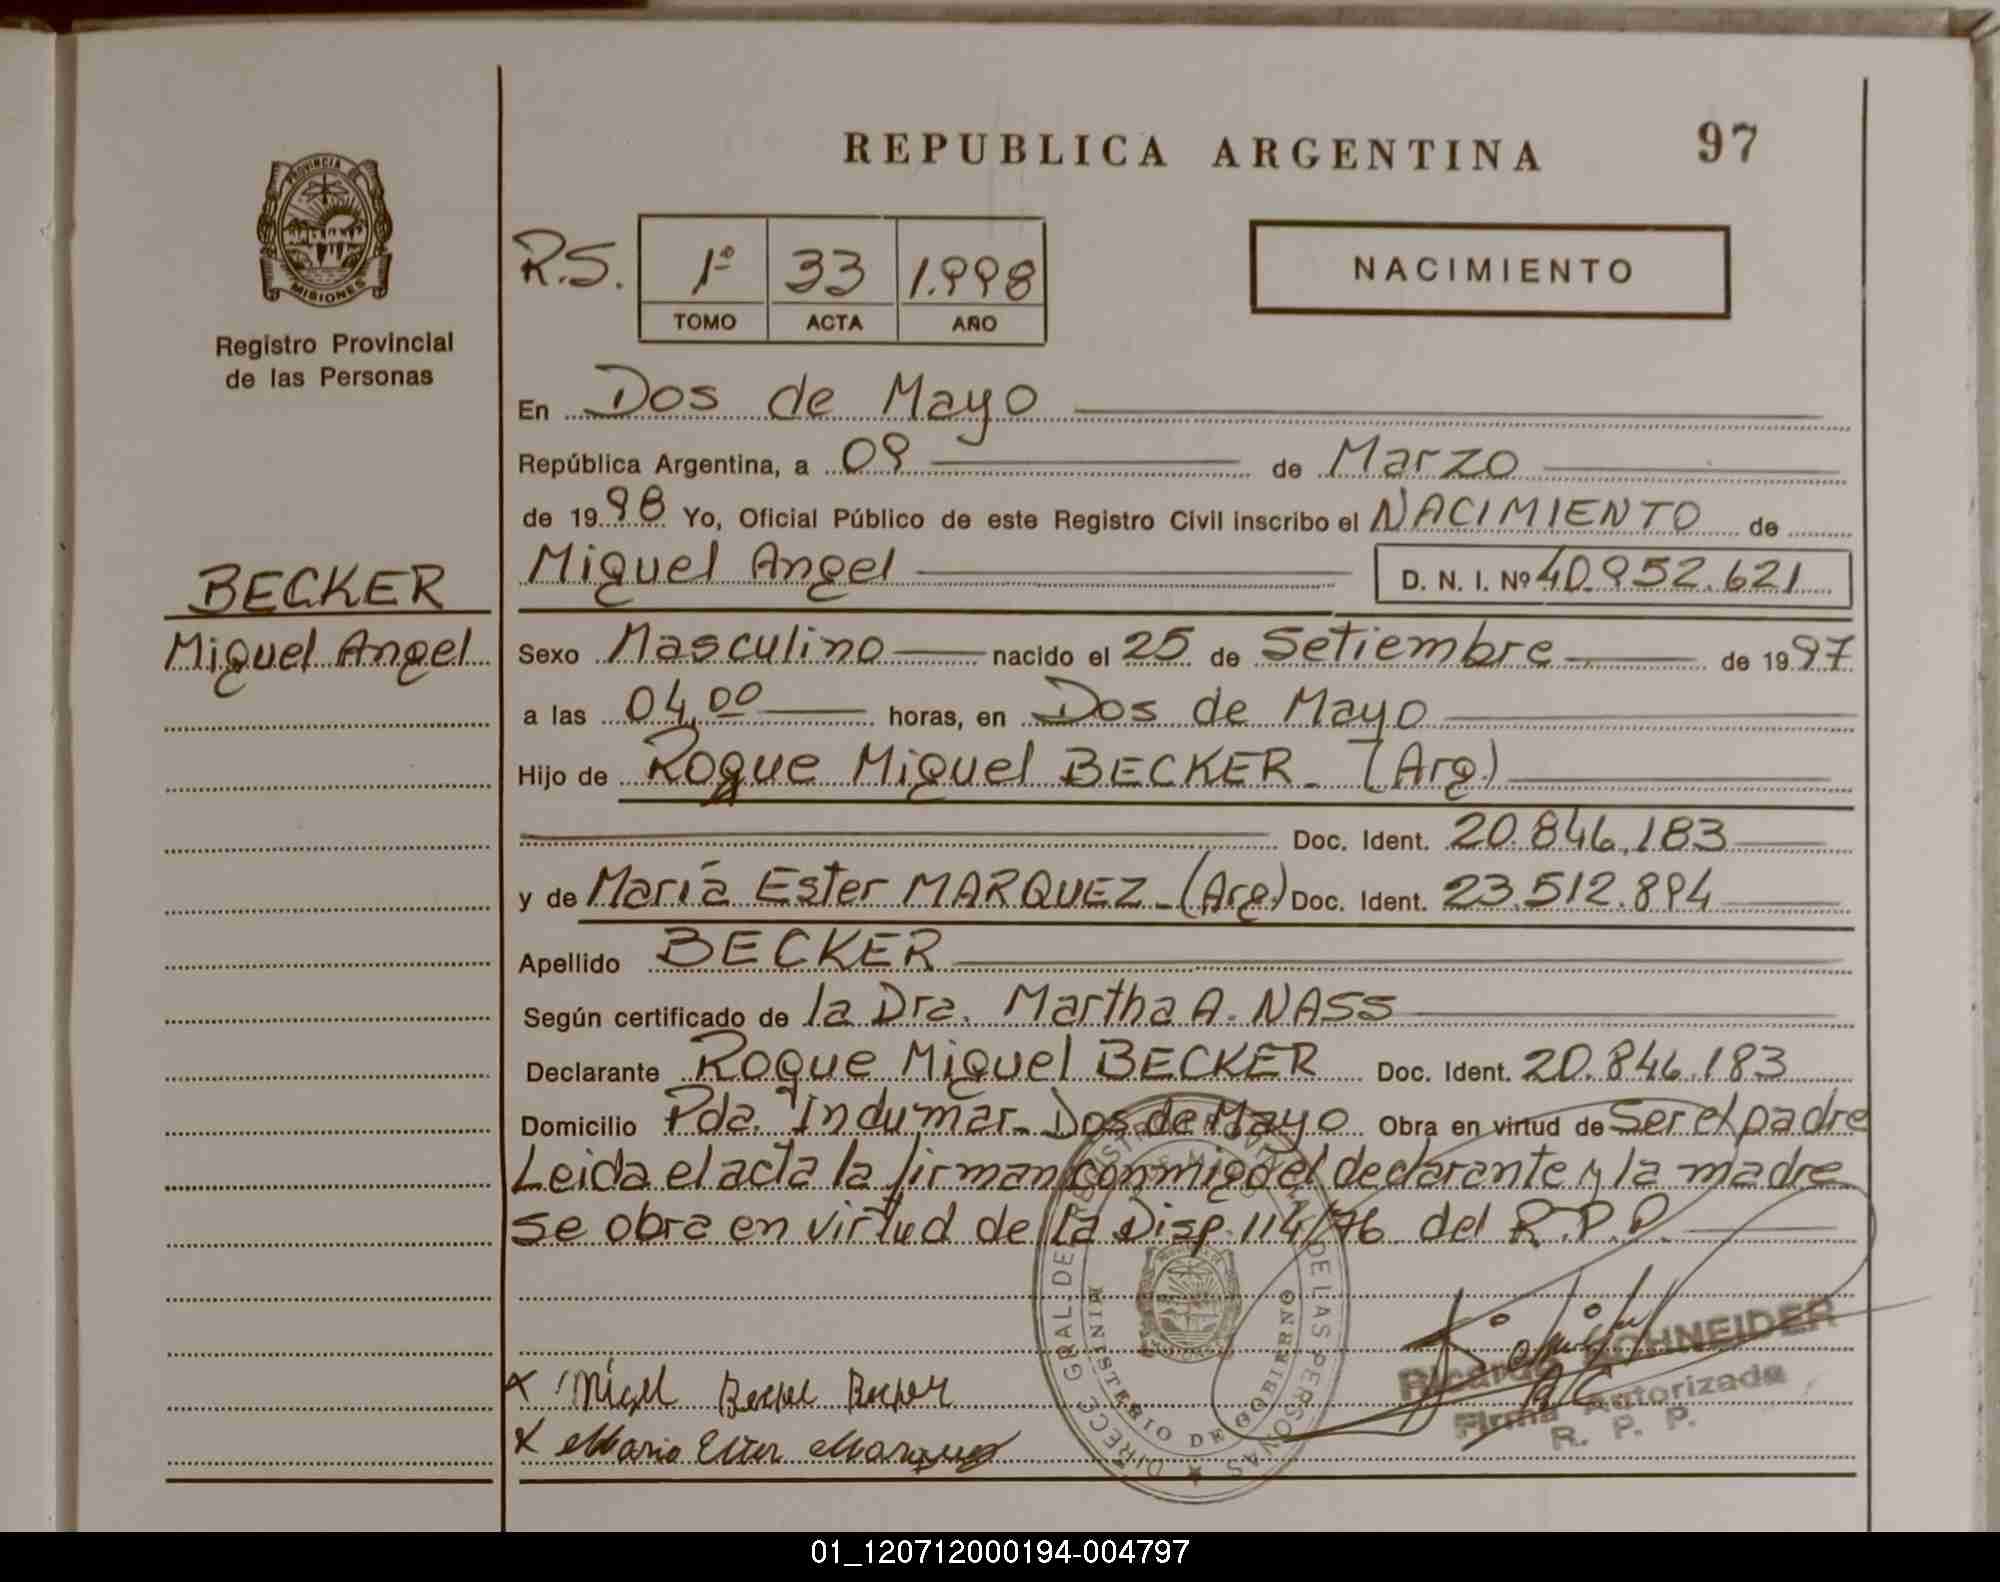 REPUBLICA ARGENTINA
97
PROVINCIA DE
MISIONES
Registro Provincial
de las Personas
R.S.
1º 33 1.998
TOMO ACTA AÑO
NACIMIENTO
En Dos de Mayo
República Argentina, a 09 de Marzo
de 1998 Yo, Oficial Público de este Registro Civil inscribo el NACIMIENTO de
BECKER
Miguel Angel
Miguel Angel D. N. I. Nº 40.952.621
Sexo Masculino nacido el 25 de Setiembre de 1997
a las 04,00 horas, en Dos de Mayo
Hijo de Roque Miguel BECKER - (Arg.)
Doc. Ident. 20.846.183
y de María Ester MARQUEZ - (Arg.) Doc. Ident. 23.512.894
Apellido BECKER
Según certificado de la Dra. Martha A. NASS
Declarante Roque Miguel BECKER Doc. Ident. 20.846.183
Domicilio Pda. Indumar - Dos de Mayo Obra en virtud de Ser el padre
Leida el acta la firman conmigo el declarante y la madre
se obra en virtud de la Disp. 114/76 del R.P.P.
DE LAS PERSONAS
MINISTERIO DE GOBIERNO
Ricardo SCHNEIDER
Firma Autorizada
R. P. P.
x Maria Ester Marquez
01_120712000194-004797